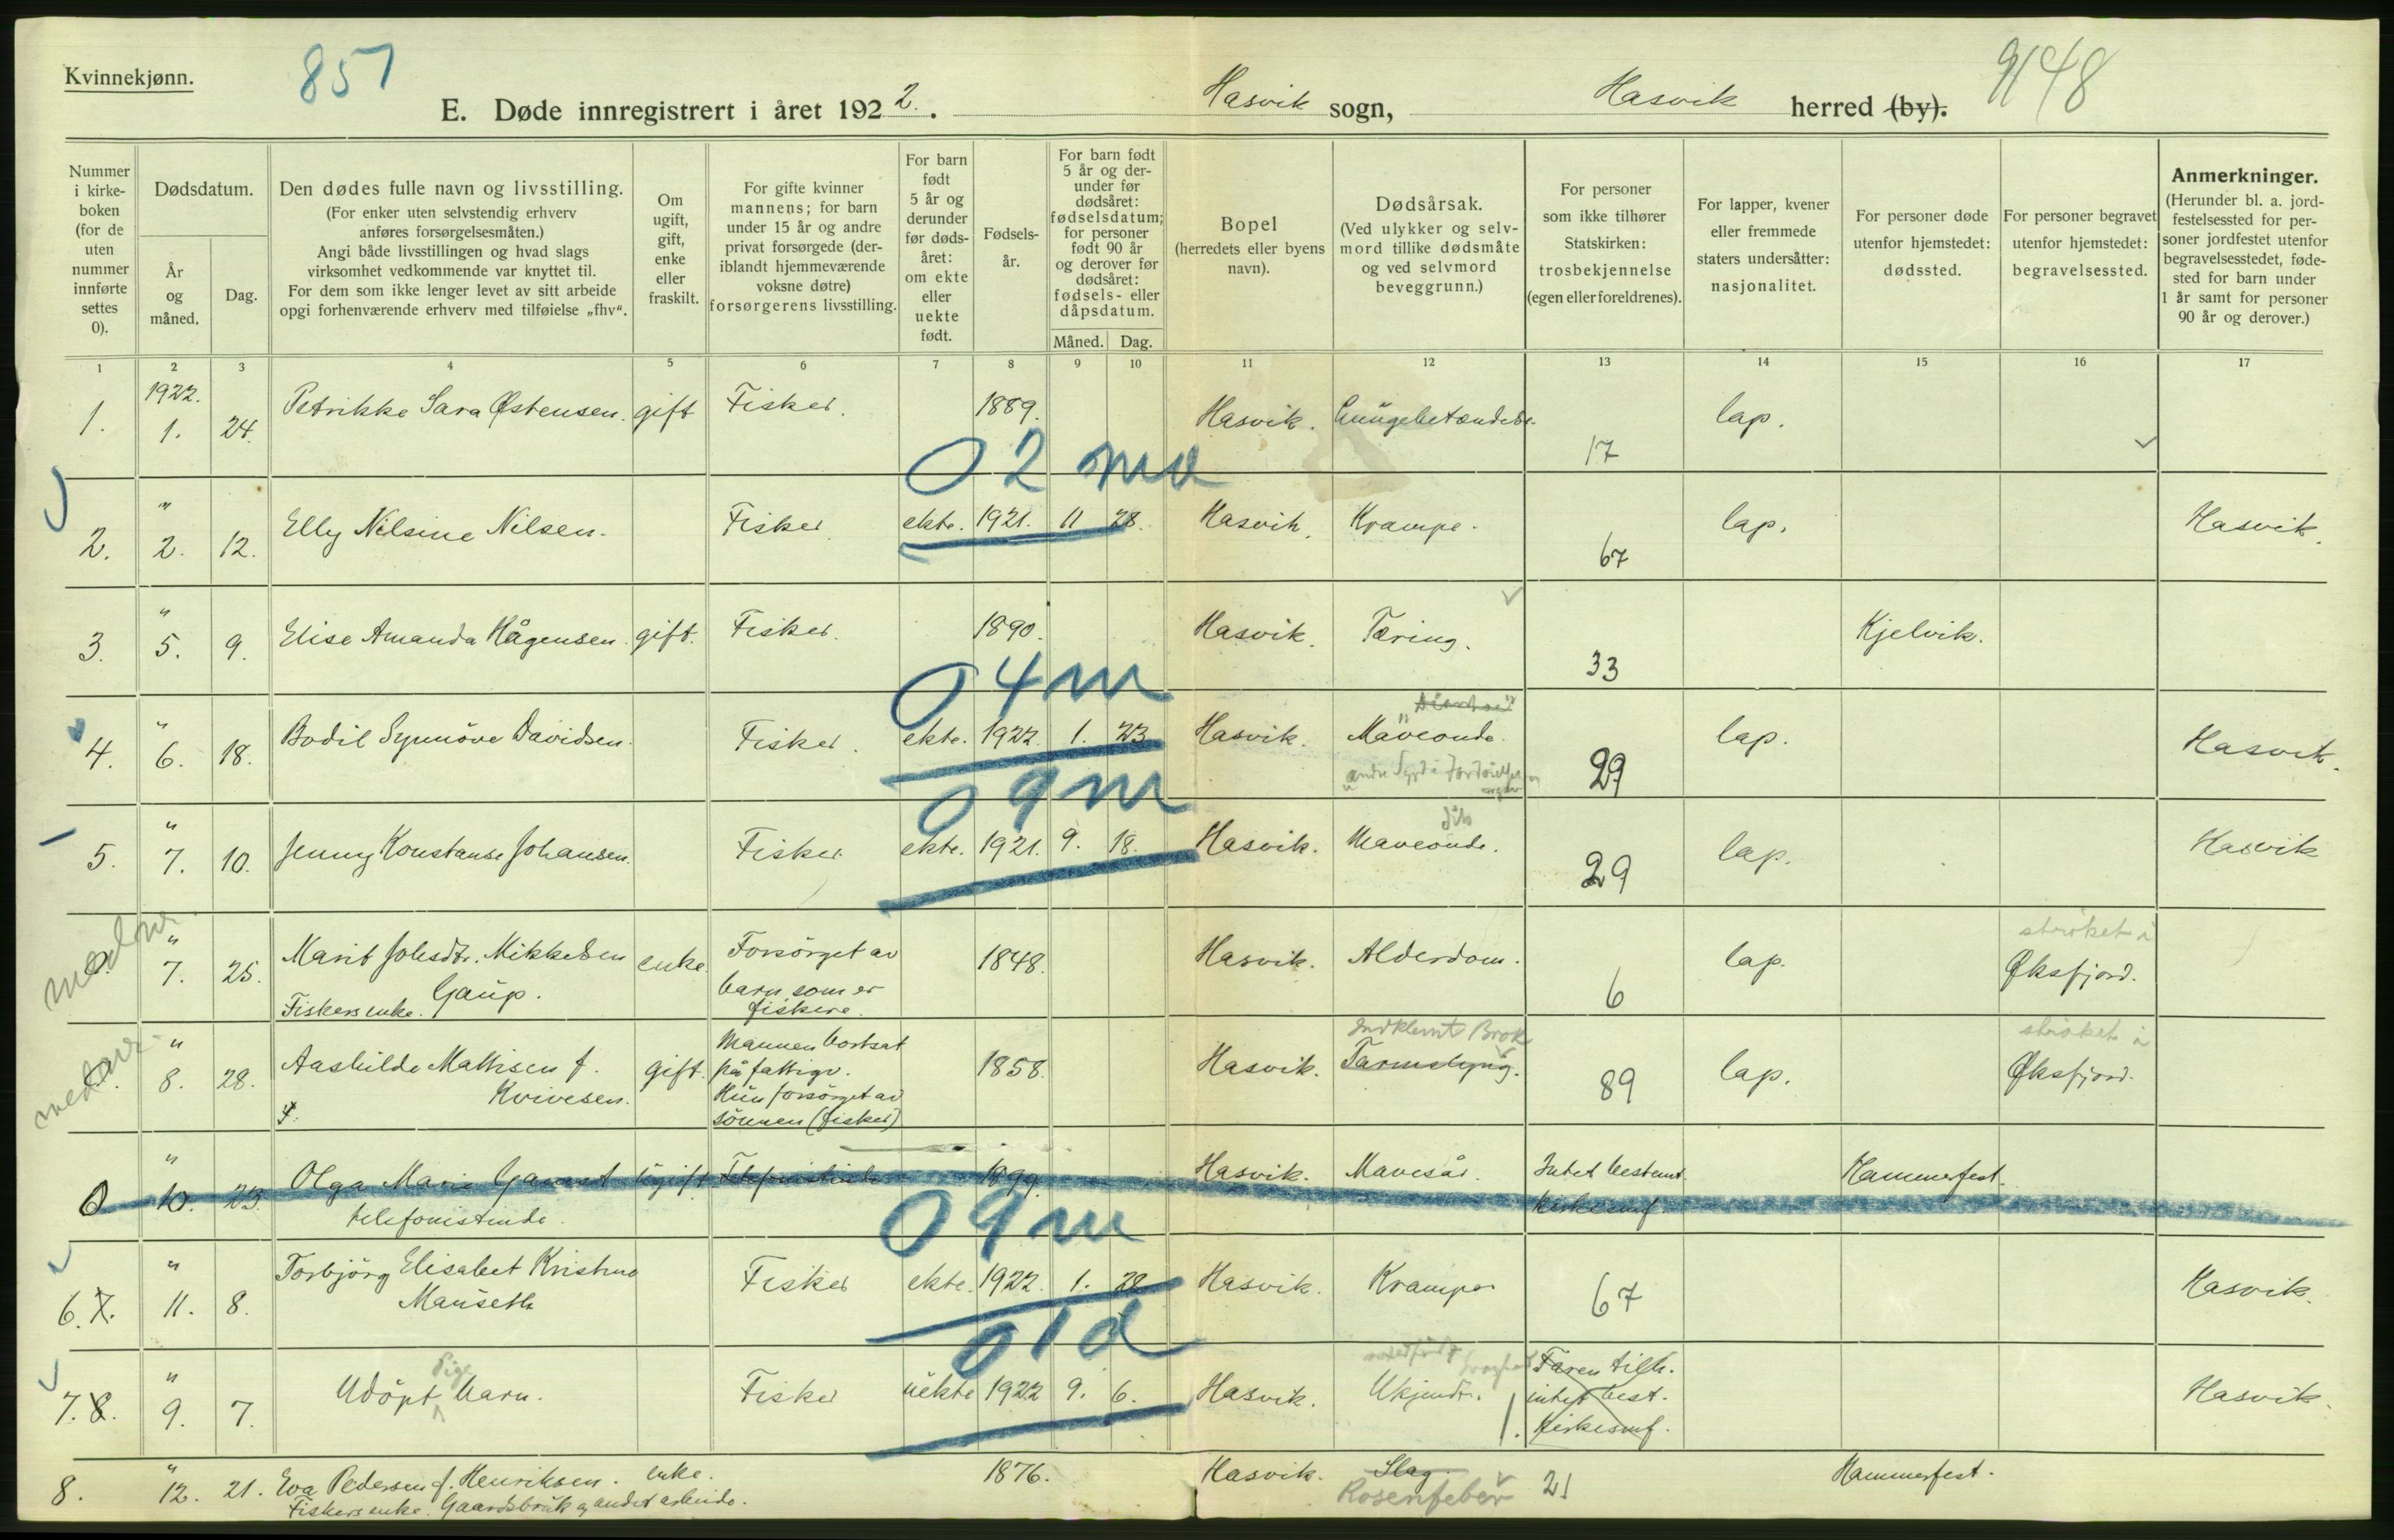 Kvinnekjønn.
857
9148
E. Døde innregistrert i året 1922. Hasvik sogn, Hasvik herred (by).
Nummer i kirke-boken (for de uten nummer innførte settes 0).
Dødsdatum.
År og måned.
Dag.
Den dødes fulle navn og livsstilling.
(For enker uten selvstendig erhverv
anføres forsørgelsesmåten.)
Angi både livsstillingen og hvad slags
virksomhet vedkommende var knyttet til.
For dem som ikke lenger levet av sitt arbeide
opgi forhenværende erhverv med tilføielse „fhv“.
Om ugift, gift, enke eller fraskilt.
For gifte kvinner
mannens; for barn
under 15 år og andre
privat forsørgede (der-
iblandt hjemmeværende
voksne døtre)
forsørgerens livsstilling.
For barn født 5 år og derunder før døds-året: om ekte eller uekte født.
Fødsels-år.
For barn født
5 år og der-
under før
dødsåret:
fødselsdatum;
for personer
født 90 år
og derover før
dødsåret:
fødsels- eller
dåpsdatum.
Måned. Dag.
Bopel
(herredets eller byens
navn).
Dødsårsak.
(Ved ulykker og selv-
mord tillike dødsmåte
og ved selvmord
beveggrunn.)
For personer
som ikke tilhører
Statskirken:
trosbekjennelse
(egen eller foreldrenes).
For lapper, kvener
eller fremmede
staters undersåtter:
nasjonalitet.
For personer døde
utenfor hjemstedet:
dødssted.
For personer begravet
utenfor hjemstedet:
begravelsessted.
Anmerkninger.
(Herunder bl. a. jord-
festelsessted for per-
soner jordfestet utenfor
begravelsesstedet, føde-
sted for barn under
1 år samt for personer
90 år og derover.)
1 2 3 4 5 6 7 8 9 10 11 12 13 14 15 16 17
1922.
1. 1. 24. Petrikke Sara Østensen. gift Fisker. 1889. Hasvik. Lungebetændelse. 17 lap.
02 md
2. " 2. 12. Elly Nilsine Nilsen. Fisker ekte. 1921. 11 28. Hasvik. Krampe. 67 lap. Hasvik.
3. " 5. 9. Elise Amanda Hågensen. gift. Fisker. 1890. Hasvik. Tæring. 33 Kjelvik.
04m
4. " 6. 18. Bodil Synnöve Davidsen. Fisker. ekte. 1922. 1. 23 Hasvik. Maveonde. 29 lap. Hasvik.
09m
5. " 7. 10. Jenny Konstanse Johansen. Fisker. ekte. 1921. 9. 18. Hasvik. Maveonde. 29 lap. Hasvik
0. " 7. 25. Marit Johsdtr. Mikkelsen enke. Forsörget av 1848. Hasvik. Alderdom. 6 lap. strøket i
Gaup. barn som er Øksfjord.
Fiskers enke. fiskere.
0. " 8. 28. Aashilde Mathisen f. gift. Mannen bortsat 1858. Hasvik. Indklemt Brok
Kvivesen. på fattigv. Tarmslyng. 89 lap. strøket i
Hun forsörget av Øksfjord.
sönnen (fisker)
0 " 10. 23. Olga Marie ugift 1899. Hasvik. Mavesår. Intet bestemt Hammerfest.
telefonistinde. kirkesamf.
09m
6. 7. " 11. 8. Torbjörg Elisabet Kristine Fisker ekte. 1922. 1. 28 Hasvik. Krampe 67 Hasvik.
Mauseth
01d
7. 8. " 9. 7. Udöpt Pige barn. Fisker uekte 1922 9. 6. Hasvik. Ukjendt. Faren tilh.
intet best.
kirkesamf. Hasvik.
8. " 12. 21. Eva Pedersen f. Henriksen. enke. 1876. Hasvik. Slag. 21 Hammerfest.
Fiskers enke. Gaardsbruk og andet arbeide. Rosenfeber